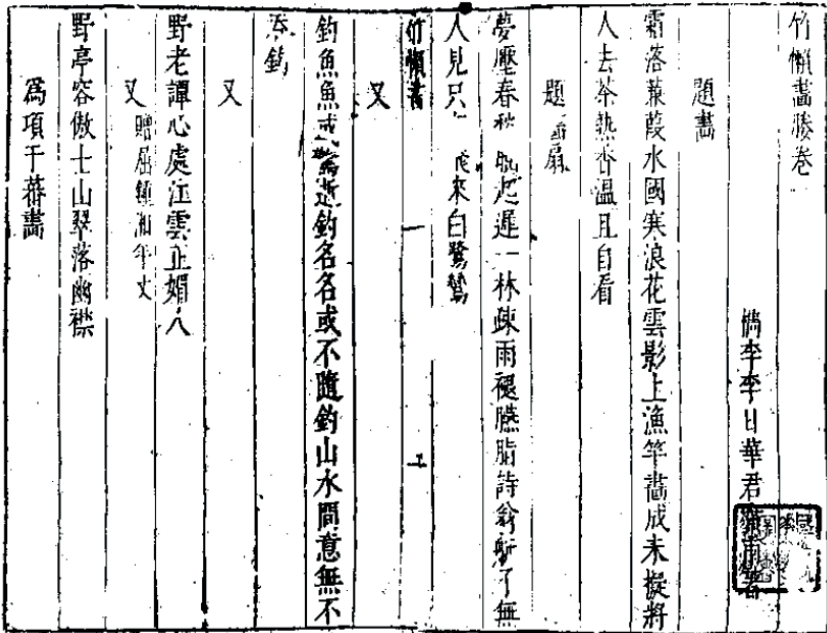 竹懶畫媵卷
檇李李日華君實甫著
題畫
霜落蒹葭水國寒浪花雲影上漁竿畵成未擬將
人去茶熱香溫且自看
題扇
夢壓春 起遲一林疎雨褪臙脂詩翁 了無
人見只 來白鷺鷥
竹懶書 一
又
釣魚魚或驚逝釣名名或不隨釣山水間意無不
釣
又
野老譚心處江雲正媚人
又 贈屈 湘年丈
野亭容傲士山翠落幽襟
爲項于蕃畵